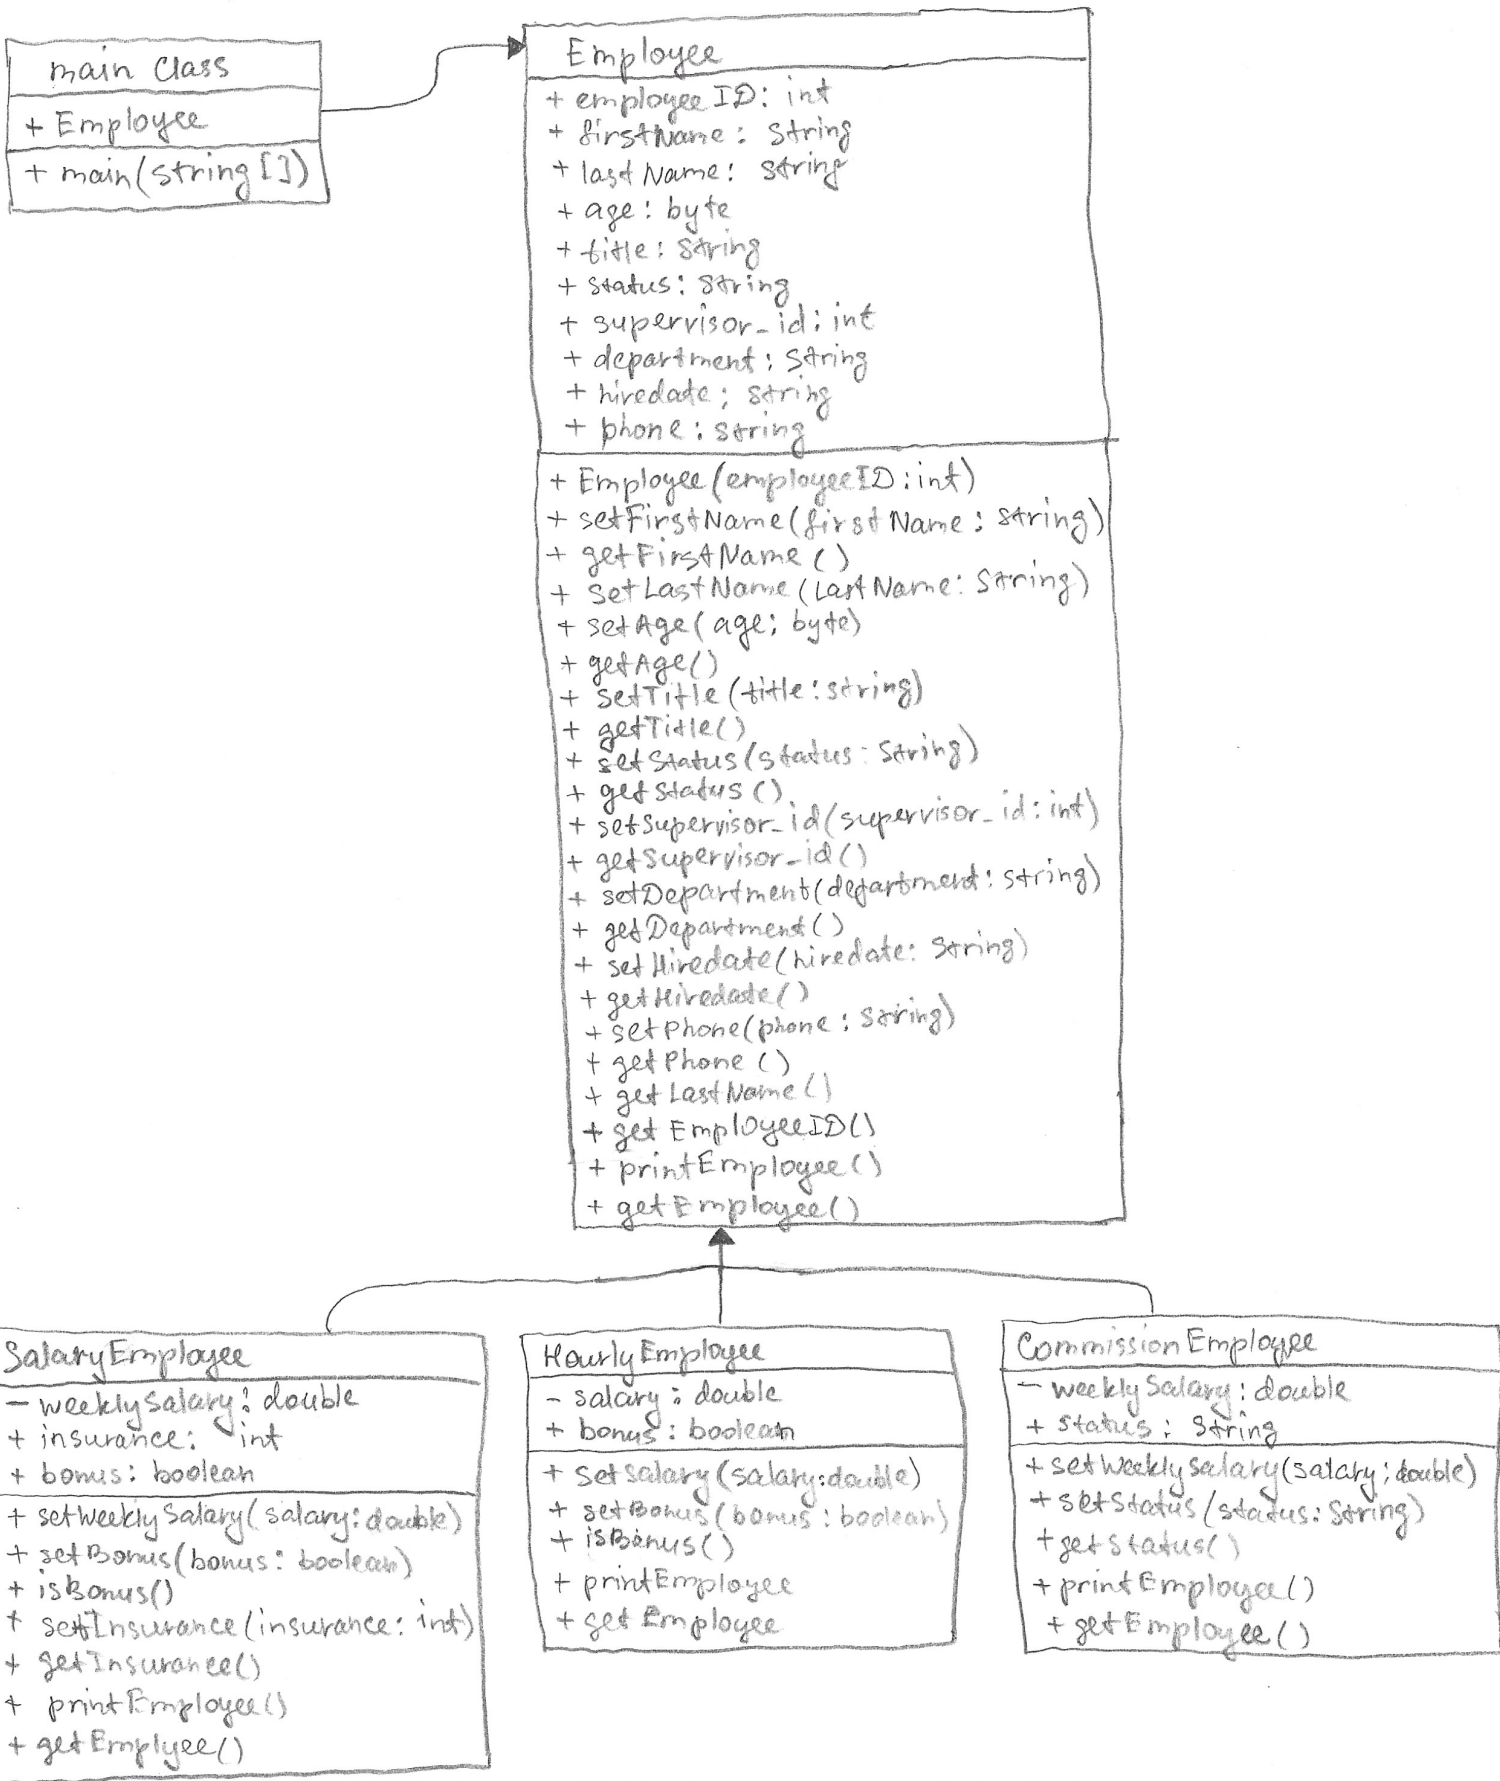 main class
+ Employee
+ main(string[])
Employee
+ employeeID: int
+ firstName: String
+ lastName: String
+ age: byte
+ title: String
+ status: String
+ supervisor_id: int
+ department: String
+ hiredate: String
+ phone: String
+ Employee(employeeID:int)
+ setFirstName(firstName: String)
+ getFirstName()
+ setLastName(lastName: String)
+ setAge(age: byte)
+ getAge()
+ setTitle(title:string)
+ getTitle()
+ setStatus(status: String)
+ getStatus()
+ setSupervisor_id(supervisor_id: int)
+ getSupervisor_id()
+ setDepartment(department: String)
+ getDepartment()
+ setHiredate(hiredate: String)
+ getHiredate()
+ setPhone(phone: String)
+ getPhone()
+ getLastName()
+ getEmployeeID()
+ printEmployee()
+ getEmployee()
SalaryEmployee
- weeklySalary: double
+ insurance: int
+ bonus: boolean
+ setWeeklySalary(salary:double)
+ setBonus(bonus: boolean)
+ isBonus()
+ setInsurance(insurance: int)
+ getInsurance()
+ printEmployee()
+ getEmplyee()
HourlyEmployee
- salary: double
+ bonus: boolean
+ setSalary(salary:double)
+ setBonus(bonus: boolean)
+ isBonus()
+ printEmployee
+ getEmployee
CommissionEmployee
- weeklySalary: double
+ status: String
+ setWeeklySalary(salary:double)
+ setStatus(status: String)
+ getStatus()
+ printEmployee()
+ getEmployee()